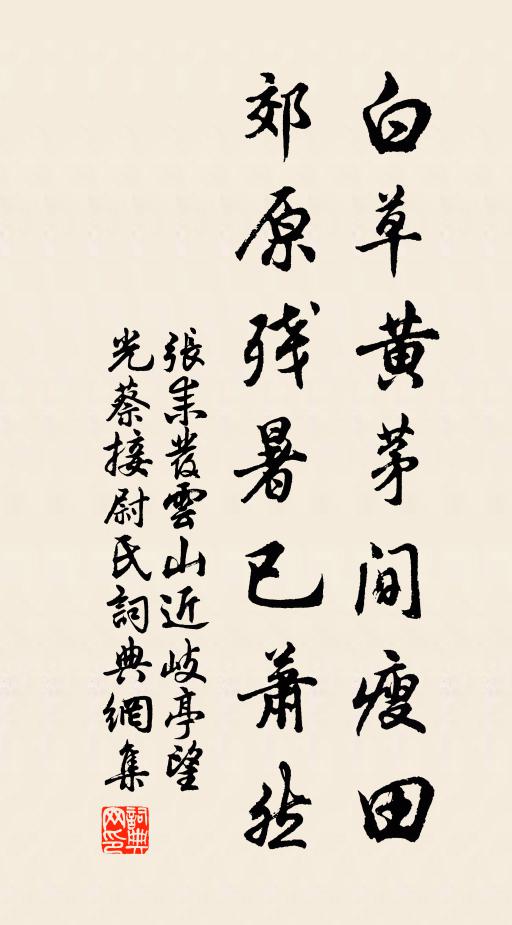 白草黄茅間瘦田
郊原残暑已蕭然
張耒發雲山近岐亭望
光蔡接尉氏詞典網集
詞典网印